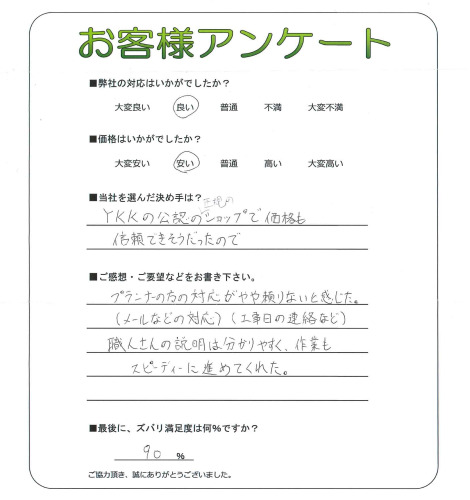 お客様アンケート
■弊社の対応はいかがでしたか？
大変良い 良い 普通 不満 大変不満
■価格はいかがでしたか？
大変安い 安い 普通 高い 大変高い
■当社を選んだ決め手は？
正規の
YKKの公認のショップで価格も
信頼できそうだったので
■ご感想・ご要望などをお書き下さい。
プランナーの方の対応がやや頼りないと感じた。
(メールなどの対応)(工事日の連絡など)
職人さんの説明は分かりやすく、作業も
スピーディーに進めてくれた。
■最後に、ズバリ満足度は何％ですか？
90 %
ご協力頂き、誠にありがとうございました。